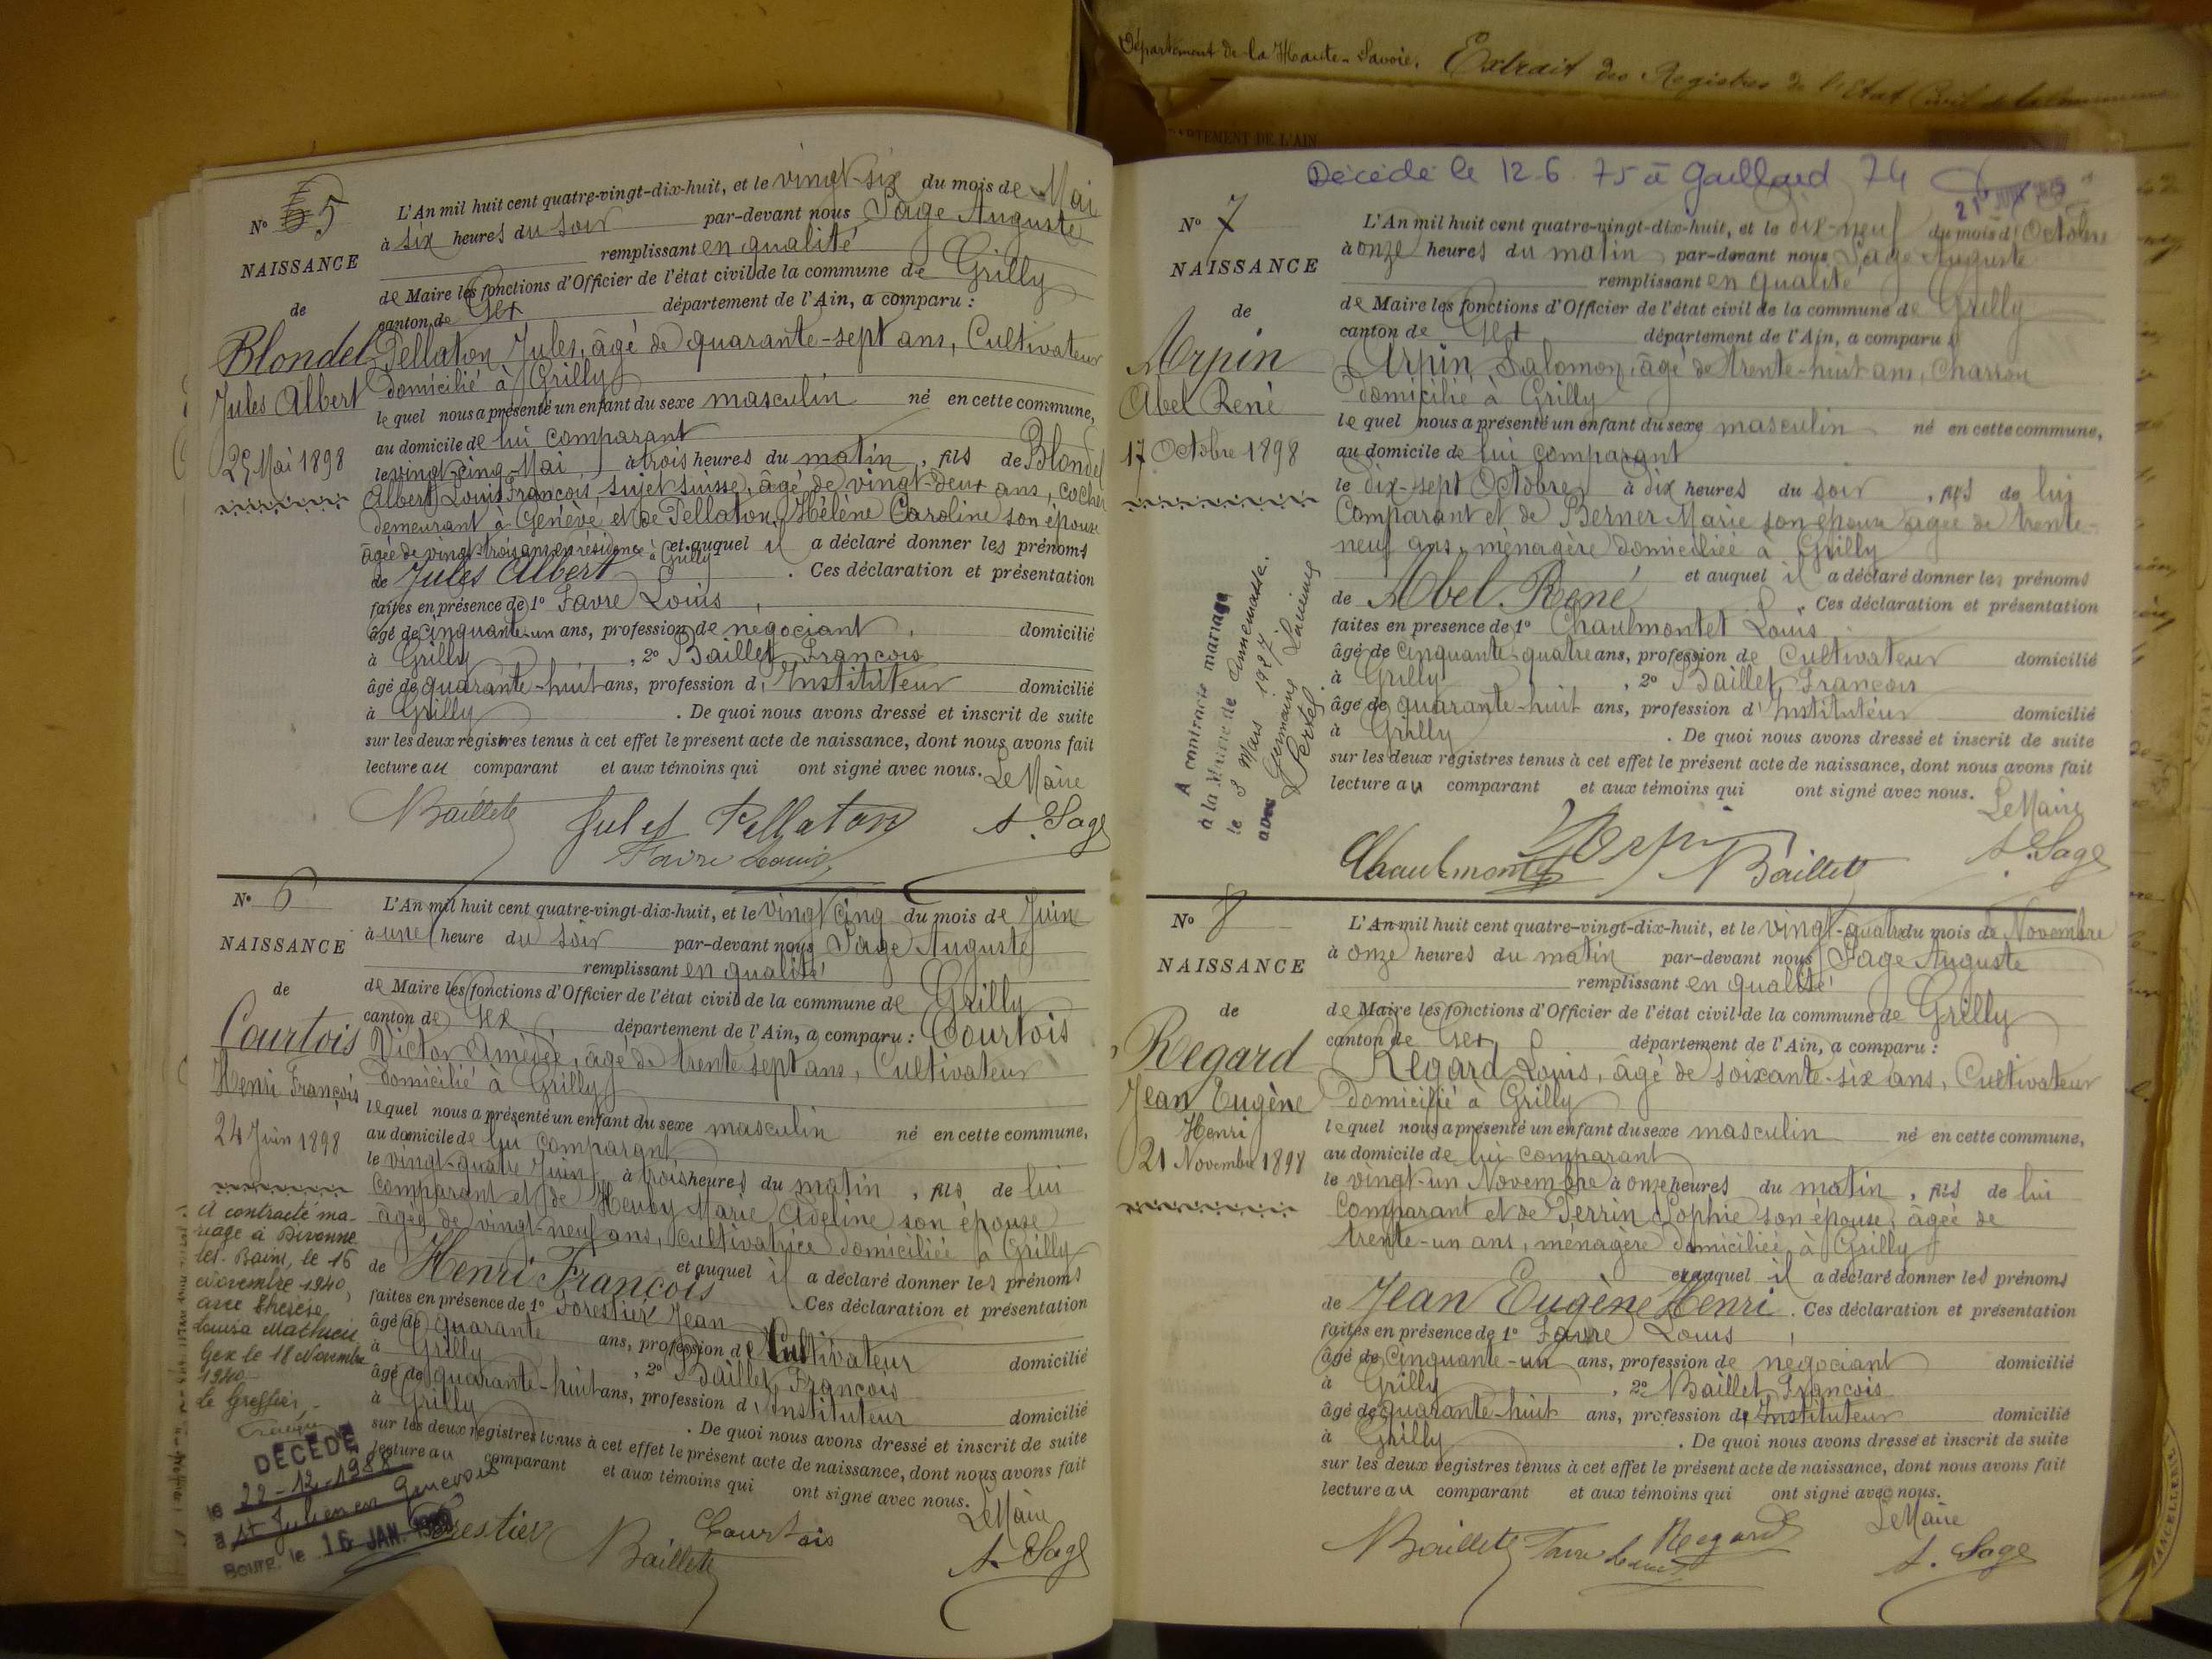 Département de la Haute-Savoie. Extrait des Registres de l'Etat Civil de la
PARTEMENT DE L'AIN
N° 5
NAISSANCE
de
Blondel
Jules Albert
25 Mai 1898
L'An mil huit cent quatre-vingt-dix-huit, et le vingt-six du mois de Mai
à six heures du soir par-devant nous Sage Auguste
remplissant en qualité
de Maire les fonctions d'Officier de l'état civil de la commune de Grilly
canton de Gex département de l'Ain, a comparu :
Pellaton Jules, âgé de quarante-sept ans, Cultivateur
domicilié à Grilly
lequel nous a présenté un enfant du sexe masculin né en cette commune,
au domicile de lui comparant
le vingt-cinq Mai à trois heures du matin, fils de Blondel
Albert Louis François, sujet suisse, âgé de vingt-deux ans, cocher
demeurant à Genève et de Pellaton Hélène Caroline son épouse
âgée de vingt-trois ans en résidence à Grilly et auquel il a déclaré donner les prénoms
de Jules Albert . Ces déclaration et présentation
faites en présence de 1° Favre Louis,
âgé de cinquante-un ans, profession de negociant, domicilié
à Grilly, 2° Baillet François
âgé de quarante-huit ans, profession d'Instituteur domicilié
à Grilly . De quoi nous avons dressé et inscrit de suite
sur les deux registres tenus à cet effet le présent acte de naissance, dont nous avons fait
lecture au comparant et aux témoins qui ont signé avec nous. Le Maire
Baillet Jules Pellaton A. Sage
Favre Louis
N° 6
NAISSANCE
de
Courtois
Henri François
24 Juin 1898
A contracté ma-
riage à Divonne
les-Bains, le 16
Novembre 1940,
avec Thérèse
Louisa Mathieu
Gex le 18 Novembre
1940
le Greffier,
DÉCÉDÉ
le 22-12-1988
à St Julien en Genevois
le 16 JAN.
L'An mil huit cent quatre-vingt-dix-huit, et le vingt cinq du mois de Juin
à une heure du soir par-devant nous Sage Auguste
remplissant en qualité
de Maire les fonctions d'Officier de l'état civil de la commune de Grilly
canton de Gex département de l'Ain, a comparu : Courtois
Victor Amédée, âgé de trente sept ans, Cultivateur
domicilié à Grilly
lequel nous a présenté un enfant du sexe masculin né en cette commune,
au domicile de lui comparant
le vingt-quatre Juin à trois heures du matin, fils de lui
comparant et de Marie Adeline son épouse
âgée de vingt-neuf ans, cultivatrice domiciliée à Grilly
et auquel il a déclaré donner les prénoms
de Henri François . Ces déclaration et présentation
faites en présence de 1° Forestier Jean
âgé de quarante ans, profession de Cultivateur domicilié
à Grilly, 2° Baillet François
âgé de quarante-huit ans, profession d'Instituteur domicilié
à Grilly . De quoi nous avons dressé et inscrit de suite
sur les deux registres tenus à cet effet le présent acte de naissance, dont nous avons fait
lecture au comparant et aux témoins qui ont signé avec nous. Le Maire
Forestier Baillet Courtois A. Sage
Décédé le 12.6.75 à Gaillard 74
N° 7
NAISSANCE
de
Arpin
Abel René
17 Octobre 1898
A contracté mariage
à la Mairie de Annemasse.
le 3 Mars 1927
avec Germaine
L'An mil huit cent quatre-vingt-dix-huit, et le dix-neuf du mois d'Octobre
à onze heures du matin par-devant nous Sage Auguste
remplissant en qualité
de Maire les fonctions d'Officier de l'état civil de la commune de Grilly
canton de Gex département de l'Ain, a comparu
Arpin Salomon, âgé de trente-huit ans, Charron
domicilié à Grilly
lequel nous a présenté un enfant du sexe masculin né en cette commune,
au domicile de lui comparant
le dix-sept Octobre à dix heures du soir, fils de lui
comparant et de Berner Marie son épouse âgée de trente-
neuf ans, ménagère domiciliée à Grilly
et auquel il a déclaré donner les prénoms
de Abel René . Ces déclaration et présentation
faites en présence de 1° Chaulmontet Louis
âgé de cinquante-quatre ans, profession de Cultivateur domicilié
à Grilly, 2° Baillet François
âgé de quarante-huit ans, profession d'Instituteur domicilié
à Grilly . De quoi nous avons dressé et inscrit de suite
sur les deux registres tenus à cet effet le présent acte de naissance, dont nous avons fait
lecture au comparant et aux témoins qui ont signé avec nous. Le Maire
Chaulmontet Arpin Baillet A. Sage
N° 8
NAISSANCE
de
Regard
Jean Eugène
Henri
21 Novembre 1898
L'An mil huit cent quatre-vingt-dix-huit, et le vingt-quatre du mois de Novembre
à onze heures du matin par-devant nous Sage Auguste
remplissant en qualité
de Maire les fonctions d'Officier de l'état civil de la commune de Grilly
canton de Gex département de l'Ain, a comparu :
Regard Louis, âgé de soixante-six ans, Cultivateur
domicilié à Grilly
lequel nous a présenté un enfant du sexe masculin né en cette commune,
au domicile de lui comparant
le vingt-un Novembre à onze heures du matin, fils de lui
comparant et de Perrin Sophie son épouse, âgée de
trente-un ans, ménagère domiciliée à Grilly
et auquel il a déclaré donner les prénoms
de Jean Eugène Henri . Ces déclaration et présentation
faites en présence de 1° Favre Louis,
âgé de cinquante-un ans, profession de negociant domicilié
à Grilly, 2° Baillet François
âgé de quarante-huit ans, profession d'Instituteur domicilié
à Grilly . De quoi nous avons dressé et inscrit de suite
sur les deux registres tenus à cet effet le présent acte de naissance, dont nous avons fait
lecture au comparant et aux témoins qui ont signé avec nous.
Le Maire
Baillet Favre Louis Regard A. Sage